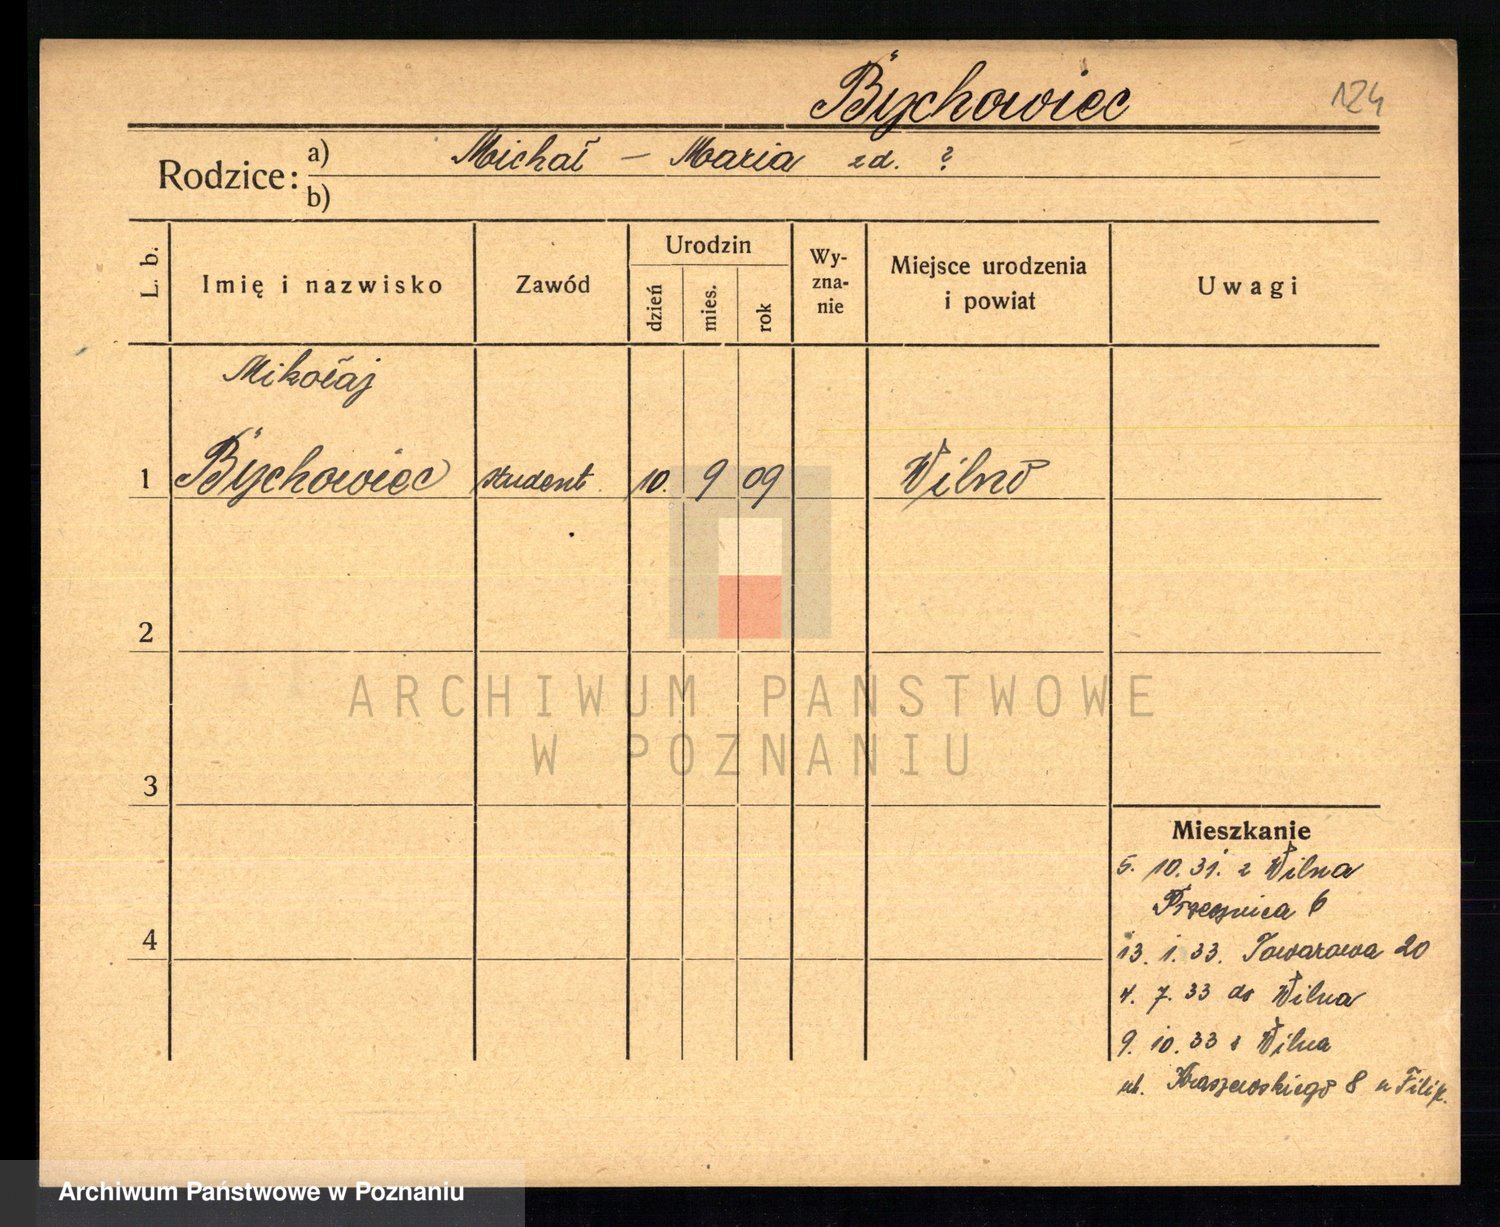 Bychowiec
124
Rodzice: a) Michał — Maria zd. ?
b)
L. b.
Imię i nazwisko
Zawód
Urodzin
dzień
mies.
rok
Wy-
zna-
nie
Miejsce urodzenia
i powiat
Uwagi
Mikołaj
1 Bychowiec student 10. 9 09 Wilno
2
ARCHIWUM PAŃSTWOWE
W POZNANIU
3
Mieszkanie
5. 10. 31. z Wilna
Przecznica 6
4
13. 1. 33. Towarowa 20
4. 7. 33 do Wilna
9. 10. 33 z Wilna
ul. Kraszewskiego 8 u Filip.
Archiwum Państwowe w Poznaniu